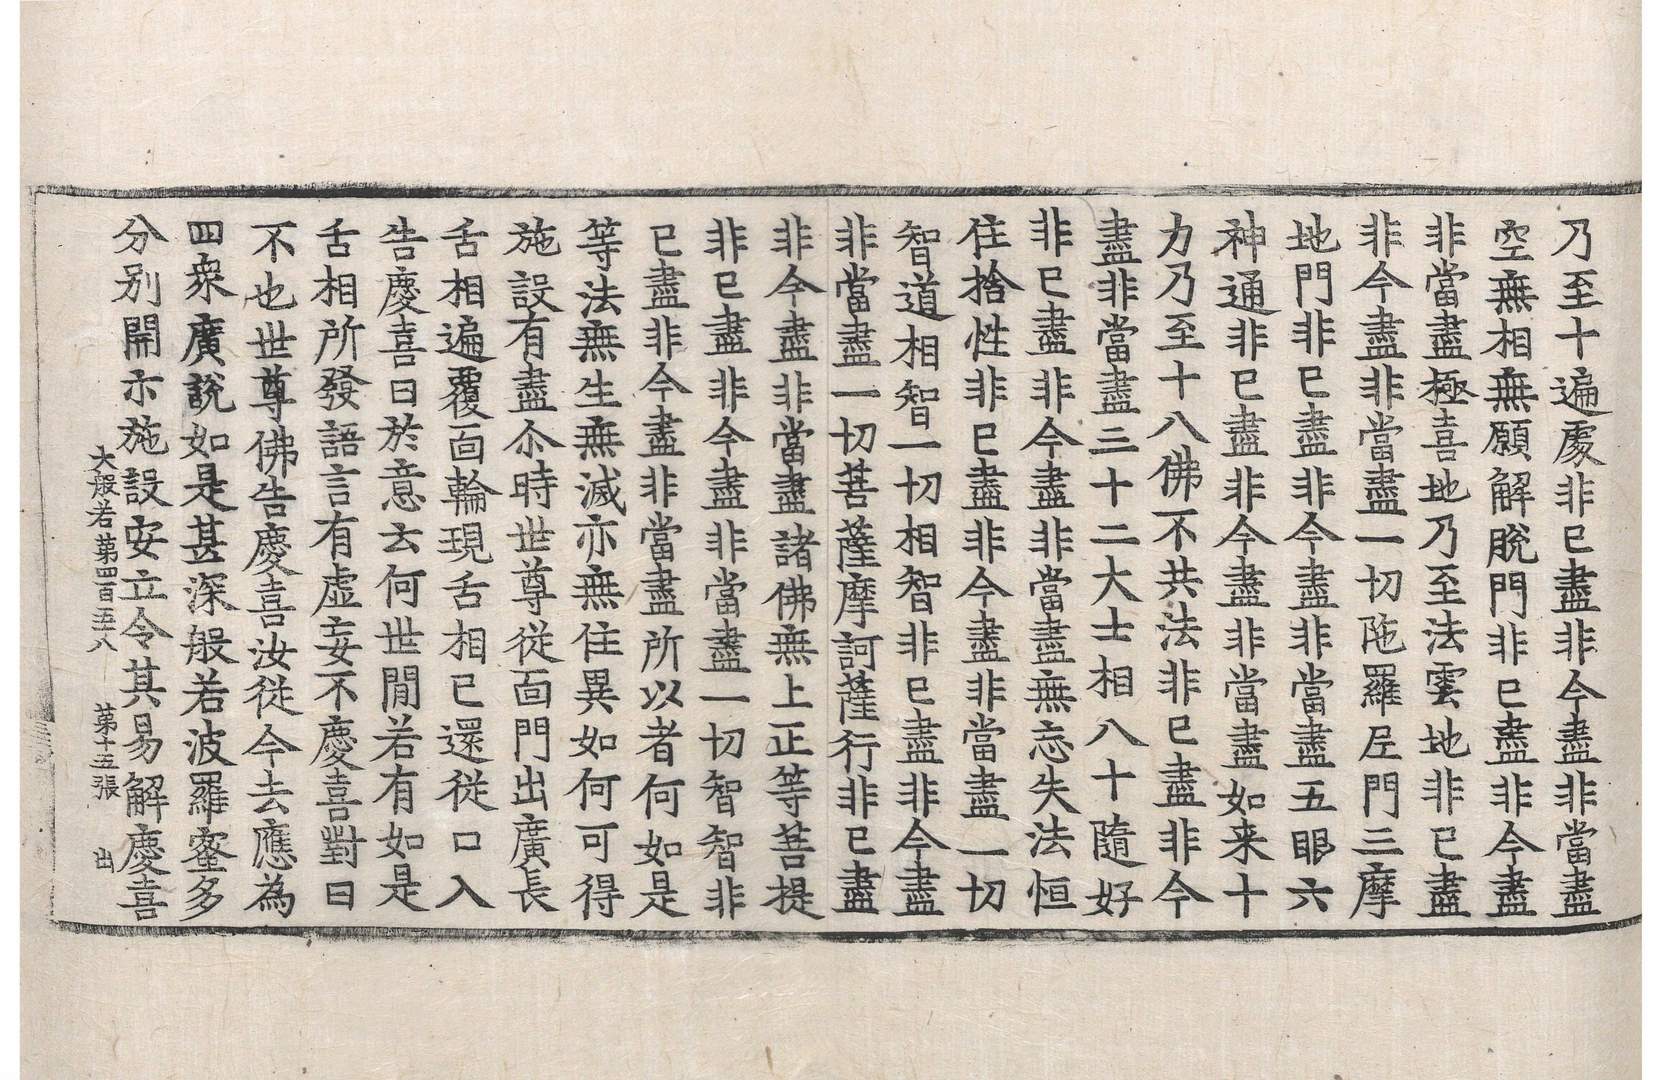 乃至十遍處非已盡非今盡非當盡
空無相無願解脫門非已盡非今盡
非當盡極喜地乃至法雲地非已盡
非今盡非當盡一切陁羅尼門三摩
地門非已盡非今盡非當盡五眼六
神通非已盡非今盡非當盡如来十
力乃至十八佛不共法非已盡非今
盡非當盡三十二大士相八十隨好
非已盡非今盡非當盡無忘失法恒
住捨性非已盡非今盡非當盡一切
智道相智一切相智非已盡非今盡
非當盡一切菩薩摩訶薩行非已盡
非今盡非當盡諸佛無上正等菩提
非已盡非今盡非當盡一切智智非
已盡非今盡非當盡所以者何如是
等法無生無滅亦無住異如何可得
施設有盡尒時世尊從面門出廣長
舌相遍覆面輪現舌相已還從口入
告慶喜曰於意云何世閒若有如是
舌相所發語言有虛妄不慶喜對曰
不也世尊佛告慶喜汝從今去應為
四衆廣說如是甚深般若波羅蜜多
分別開示施設安立令其易解慶喜
大般若第四百五十八 第十五張 出